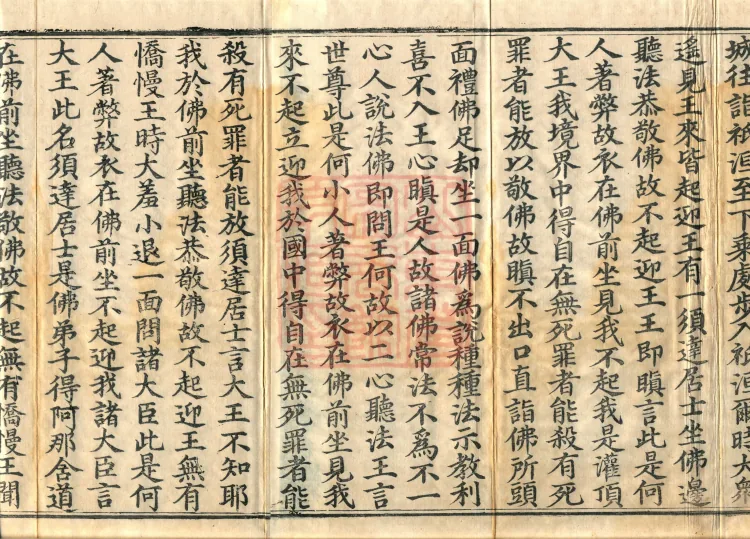 城往詣祇洹至下乘處步入祇洹爾時大衆
遙見王來皆起迎王有一須達居士坐佛邊
聽法恭敬佛故不起迎王王即瞋言此是何
人著弊故衣在佛前坐見我不起我是灌頂
大王我境界中得自在無死罪者能殺有死
罪者能放以敬佛故瞋不出口直詣佛所頭
面禮佛足却坐一面佛爲說種種法示教利
喜不入王心瞋是人故諸佛常法不爲不一
心人說法佛即問王何故以二心聽法王言
世尊此是何小人著弊故衣在佛前坐見我
來不起立迎我於國中得自在無死罪者能
殺有死罪者能放須達居士言大王不知耶
我於佛前坐聽法恭敬佛故不起迎王無有
憍慢王時大羞小退一面問諸大臣此是何
人著弊故衣在佛前坐不起迎我諸大臣言
大王此名須達居士是佛弟子得阿那舍道
在佛前坐聽法敬佛故不起無有憍慢王聞